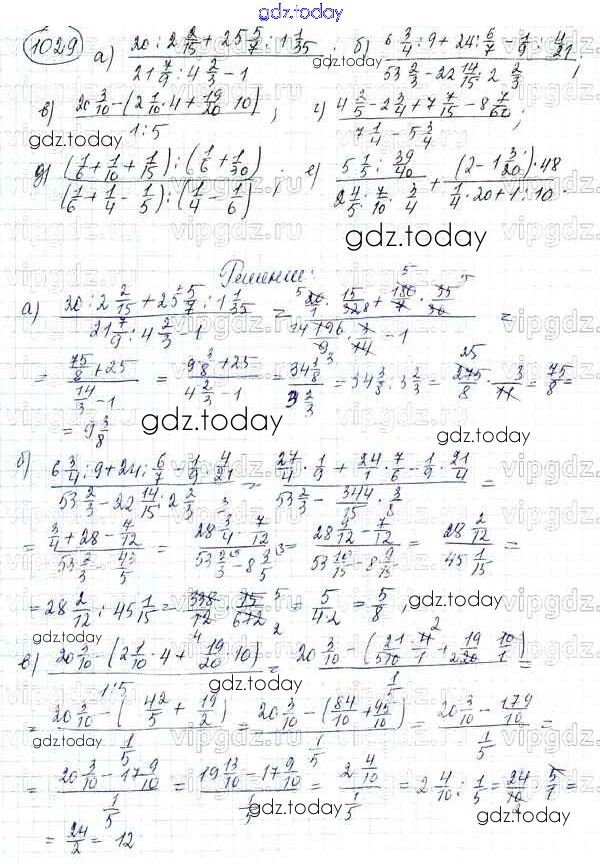 gdz.today
1029 а) (20 : 2 2/15 + 25 5/7 : 1 1/35) / (21 7/9 : 4 2/3 − 1) ; б) (6 3/4 : 9 + 24 : 6/7 − 1/9 : 4/21) / (53 2/3 − 22 14/15 : 2 2/3) ;
в) (20 3/10 − (2 1/10 · 4 + 19/20 · 10)) / (1 : 5) ; г) (4 2/5 − 2 3/4 + 7 7/15 − 8 7/60) / (7 1/4 − 5 3/4) ;
д) ((1/6 + 1/10 + 1/15) : (1/6 + 1/30)) / ((1/6 + 1/4 − 1/5) : (1/4 − 1/6)) ; е) (5 1/5 : 39/40) / (2 4/5 : 7/10 · 3/4) + ((2 − 1 3/20) · 48) / (1/4 · 20 + 1 : 10) .
Решение:
а) (20 : 2 2/15 + 25 5/7 : 1 1/35) / (21 7/9 : 4 2/3 − 1) = (20/1 · 15/32 + 180/7 · 35/36) / (196/9 · 3/14 − 1) =
= (75/8 + 25) / (14/3 − 1) = (9 3/8 + 25) / (4 2/3 − 1) = (34 3/8) / (3 2/3) = 34 3/8 : 3 2/3 = 275/8 · 3/11 = 75/8 =
= 9 3/8
б) (6 3/4 : 9 + 24 : 6/7 − 1/9 : 4/21) / (53 2/3 − 22 14/15 : 2 2/3) = (27/4 · 1/9 + 24/1 · 7/6 − 1/9 · 21/4) / (53 2/3 − 344/15 · 3/8) =
= (3/4 + 28 − 7/12) / (53 2/3 − 43/5) = (28 3/4 − 7/12) / (53 2/3 − 8 3/5) = (28 9/12 − 7/12) / (53 10/15 − 8 9/15) = (28 2/12) / (45 1/15) =
= 28 2/12 : 45 1/15 = 338/12 · 15/676 = 5/4·2 = 5/8 ,
в) (20 3/10 − (2 1/10 · 4 + 19/20 · 10)) / (1 : 5) = (20 3/10 − (21/10 · 4/1 + 19/20 · 10/1)) / (1/5) =
= (20 3/10 − (42/5 + 19/2)) / (1/5) = (20 3/10 − (84/10 + 95/10)) / (1/5) = (20 3/10 − 179/10) / (1/5) =
= (20 3/10 − 17 9/10) / (1/5) = (19 13/10 − 17 9/10) / (1/5) = (2 4/10) / (1/5) = 2 4/10 : 1/5 = 24/10 · 5/1 =
= 24/2 = 12